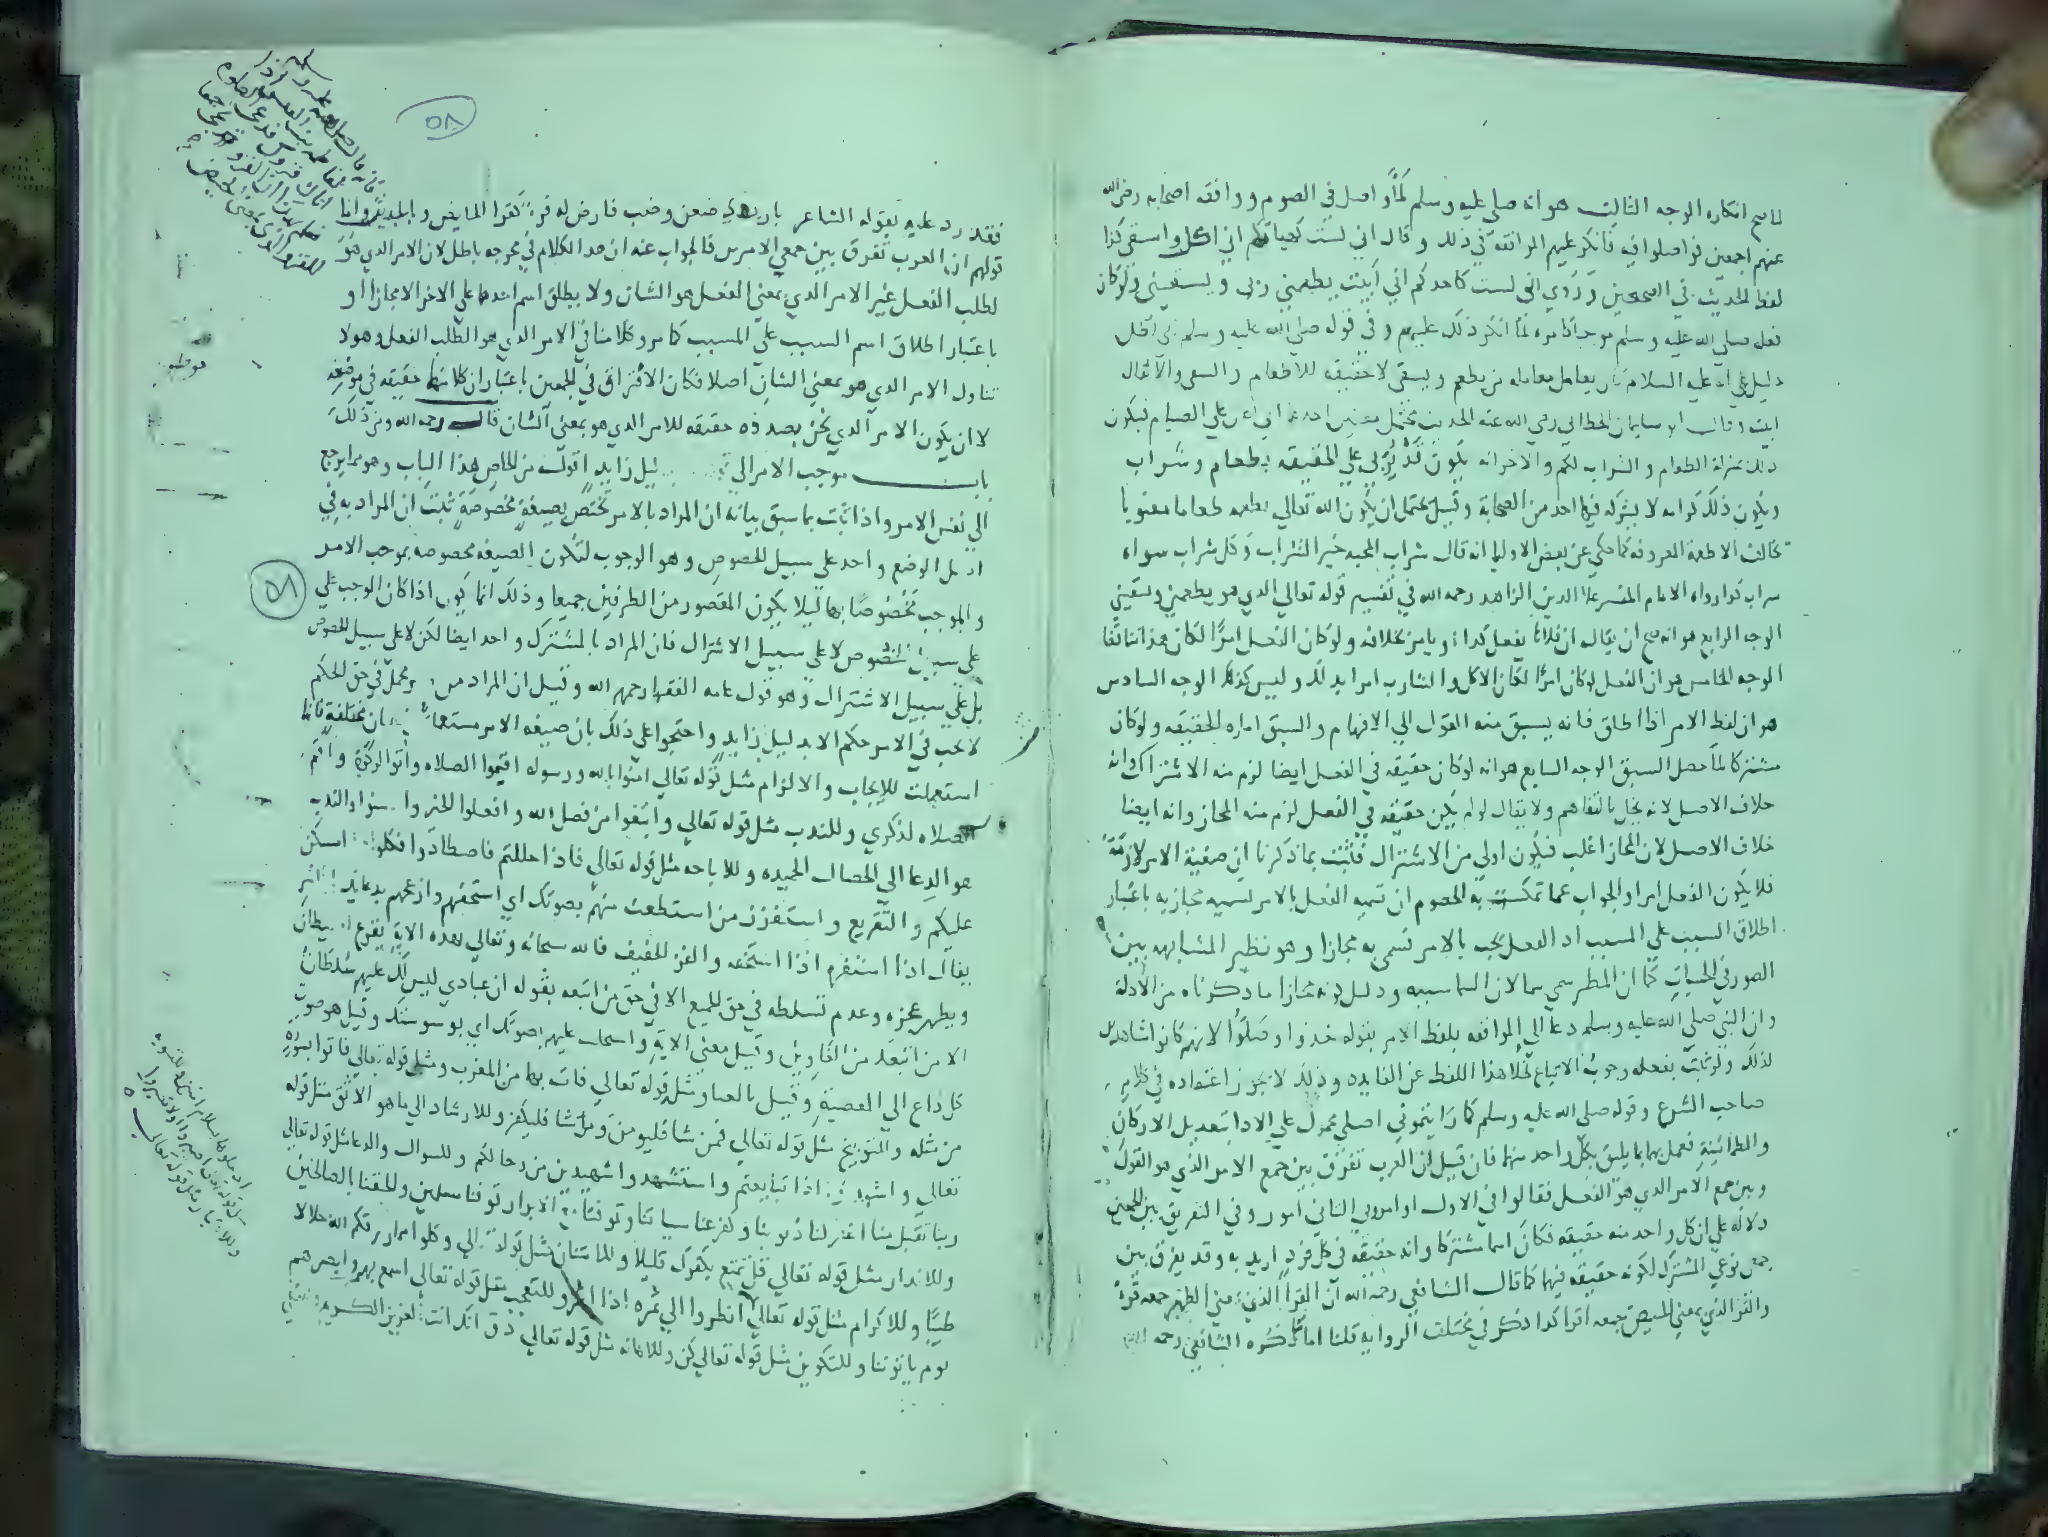 لما صح انكاره الوجه الثالث هو انه صلى عليه وسلم لما واصل في الصوم ووافقه اصحابه رضي الله
عنهم اجمعين فواصلوا فيه فانكر عليهم الموافقة في ذلك وقال اني لست كهياتكم اني اكل واسقى كذا
لفظ الحديث في الصحيحين وروي اني لست كاحدكم اني ابيت يطعمني ربي ويسقيني ولو كان
فعله صلى الله عليه وسلم موجبا كامره لما انكر ذلك عليهم وفي قوله صلى الله عليه وسلم
دليل على انه عليه السلام كان يعامل معاملة من يطعم ويسقى لا حقيقة للاطعام والسقي
ابو سليمان الخطابي رضي الله عنه الحديث يحتمل معنيين احدهما اني اعان على الصيام فيكون
ذلك بمنزلة الطعام والشراب لكم والاخر انه يكون قد يؤتى على الحقيقة بطعام وشراب
ويكون ذلك كرامة لا يشركه فيها احد من الصحابة وقيل يحتمل ان يكون الله تعالى يطعمه طعاما معنويا
يخالف الاطعمة المعروفة كما حكي عن بعض الاوليا انه قال شراب المحبة خير الشراب وكل شراب سواه
سراب كذا رواه الامام المفسر علا الدين الزاهد رحمه الله في تفسير قوله تعالى الذي هو يطعمني ويسقيني
الوجه الرابع هو انه صح ان يقال ان فلانا يفعل كذا ويامر بخلافه ولو كان الفعل امرا لكان هذا تناقضا
الوجه الخامس هو ان الفعل لو كان امرا لكان الاكل والشارب امرا بذلك وليس كذلك الوجه السادس
هو ان لفظ الامر اذا اطلق فانه يسبق منه القول الى الافهام والسبق امارة الحقيقة ولو كان
مشتركا لما حصل السبق الوجه السابع هو انه لو كان حقيقة في الفعل ايضا لزم منه الاشتراك وانه
خلاف الاصل لانه يخل بالتفاهم ولا يقال لو لم يكن حقيقة في الفعل لزم منه المجاز وانه ايضا
خلاف الاصل لان المجاز اغلب فيكون اولى من الاشتراك فثبت بما ذكرنا ان صيغة الامر لازمة
فلا يكون الفعل امرا والجواب عما تمسكت به الخصوم ان تسمية الفعل بالامر تسمية مجازية باعتبار
اطلاق السبب على المسبب اذ الفعل يجب بالامر تسمى به مجازا وهو نظير المشابهة بين
الصور في الحسيات كما ان المطر سمي سما لان السما سببه ودليل كونه مجازا ما ذكرناه من الادلة
وان النبي صلى الله عليه وسلم دعا الى الموافقة بلفظ الامر بقوله خذوا وصلوا لانهم كانوا شاهدين
لذلك ولو ثابت بفعله وجوب الاتباع لخلا هذا اللفظ عن الفايدة وذلك لا يجوز اعتقاده في كلام
صاحب الشرع وقوله صلى الله عليه وسلم كما رايتموني اصلي محمول على الادا بتعديل الاركان
والطمانينة فعمل بهما بما يليق بكل واحد منهما فان قيل ان العرب تفرق بين جمع الامر الذي هو القول
وبين جمع الامر الذي هو الفعل فقالوا في الاول اوامر وفي الثاني امور وفي التفريق بين الجمعين
دلالة على ان كل واحد منه حقيقة فكان اسما مشتركا وانه حقيقة في كل فرد اريد به وقد يفرق بين
جمعي نوعي المشترك لكونه حقيقة فيهما كما قال الشافعي رحمه الله ان القرا الذي بمعنى الطهر جمعه قرؤ
والقر الذي بمعنى الحيض جمعه اقرا كذا ذكر في مختلف الرواية قلنا اما ما ذكره الشافعي رحمه الله
٥٨
فقد رد عليه بقول الشاعر يا رب ذي ضغن وضب فارض له قرؤ كقرؤ الحايض وبالحديث واما
قولهم ان العرب تفرق بين جمعي الامرين فالجواب عنه ان هذا الكلام في مخرجه باطل لان الامر الذي هو
لطلب الفعل غير الامر الذي بمعنى الفعل هو الشان ولا يطلق اسم احدهما على الاخر الا مجازا او
باعتبار اطلاق اسم السبب على المسبب كما مر وكلامنا في الامر الذي هو الطلب الفعل وهو لا
تناول الامر الذي هو بمعنى الشان اصلا فكان الافتراق في الجمعين باعتبار ان كلا منهما حقيقة في موضعه
لا ان يكون الامر الذي نحن بصدده حقيقة للامر الذي هو بمعنى الشان قال رحمه الله ومن ذلك
باب موجب الامر الى دليل زايد اقول من الخاص هذا الباب وهو ما يرجع
الى نفس الامر واذا ثبت بما سبق بيانه ان المراد بالامر تختص بصيغة مخصوصة ثبت ان المراد به في
اصل الوضع واحد على سبيل الخصوص وهو الوجوب لتكون الصيغة مخصوصة بموجب الامر
والموجب مخصوصا بها ليلا يكون المقصور من الطرفين جميعا وذلك انما يكون اذا كان الوجب على
على سبيل الخصوص لا على سبيل الاشتراك فان المراد بالمشترك واحد ايضا لكن لا على سبيل الخصوص
بل على سبيل الاشتراك وهو قول عامة الفقها رحمهم الله وقيل ان المراد من مجمل في حق الحكم
لا يجب في الامر حكم الا بدليل زايد واحتجوا على ذلك بان صيغة الامر مستعملة لمعان مختلفة فانها
استعملت للايجاب والالزام مثل قوله تعالى امنوا بالله ورسوله اقيموا الصلاه واتوا الزكوة واقم
الصلاه لذكري وللندب مثل قوله تعالى وابتغوا من فضل الله وافعلوا الخير واحسنوا والندب
هو الدعا الى الخصال الحميدة وللاباحة مثل قوله تعالى فاذا حللتم فاصطادوا فكلوا مما امسكن
عليكم والتقريع واستفزز من استطعت منهم بصوتك اي استخفهم وازعجهم بدعايك الى الشر
يقال اذا استفزه اذا استخفه والفز الخفيف فالله سبحانه وتعالى بهذه الاية يقرع الشيطان
ويظهر عجزه وعدم تسلطه في حق الجميع الا في حق من اتبعه بقوله ان عبادي ليس لك عليهم سلطان
الا من اتبعك من الغاوين وقيل معنى الاية واجلب عليهم بصوتك اي بوسوستك وقيل هو صوت
كل داع الى المعصية وقيل بالغنا ومثل قوله تعالى فات بها من المغرب ومثل قوله تعالى فاتوا بسورة
من مثله والتوبيخ مثل قوله تعالى فمن شا فليومن ومن شا فليكفر وللارشاد الى ما هو الاوثق مثل قوله
تعالى واشهدوا اذا تبايعتم واستشهدوا شهيدين من رجالكم وللسوال والدعا مثل قوله تعالى
ربنا تقبل منا اغفر لنا ذنوبنا وكفر عنا سياتنا وتوفنا مع الابرار توفنا مسلمين والحقنا بالصالحين
وللانذار مثل قوله تعالى قل تمتع بكفرك قليلا وللامتنان مثل قوله تعالى وكلوا مما رزقكم الله حلالا
طيبا وللاكرام مثل قوله تعالى انظروا الى ثمره اذا اثمر وللتعجب مثل قوله تعالى اسمع بهم وابصر هم
يوم ياتوننا وللتكوين مثل قوله تعالى كن وللاهانة مثل قوله تعالى ذق انك انت العزيز الكريم
٥٨